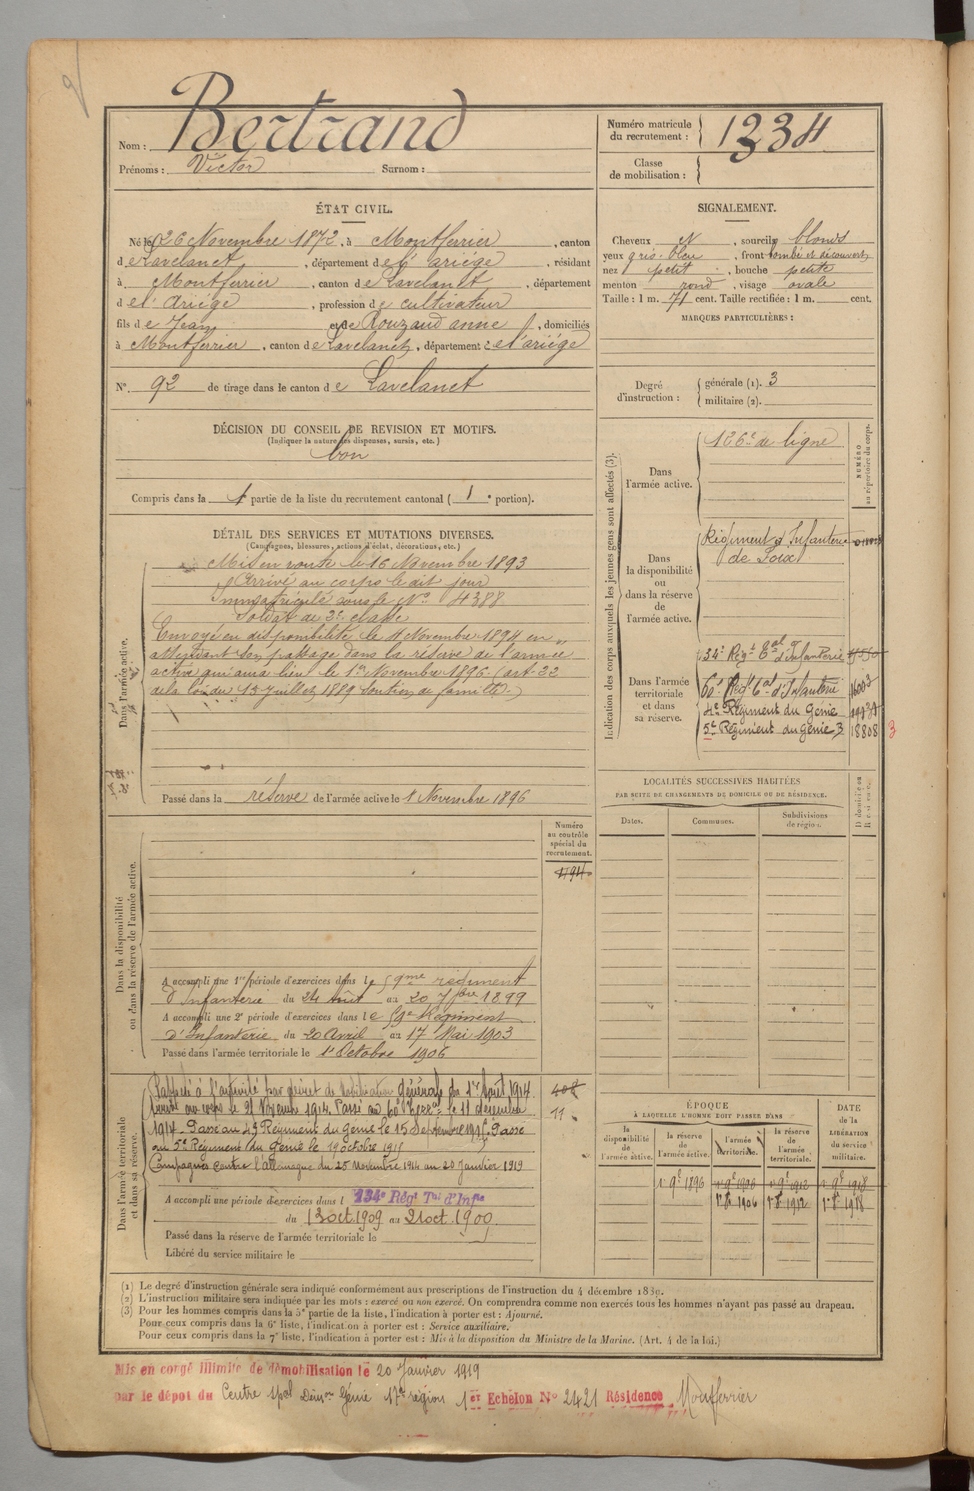 Nom : Bertrand
Prénoms : Victor Surnom :
Numéro matricule du recrutement : 1334
Classe de mobilisation :
ÉTAT CIVIL.
Né le 26 Novembre 1872, à Montferrier, canton
de Lavelanet, département de l'ariége, résidant
à Montferrier, canton de Lavelanet, département
de l'Ariége, profession de cultivateur
fils de Jean et de Rouzaud anne, domiciliés
à Montferrier, canton de Lavelanet, département de l'ariége
N° 92 de tirage dans le canton de Lavelanet
DÉCISION DU CONSEIL DE REVISION ET MOTIFS.
(Indiquer la nature des dispenses, sursis, etc.)
bon
Compris dans la 1 partie de la liste du recrutement cantonal (1e portion).
SIGNALEMENT.
Cheveux et, sourcils blonds
yeux gris-bleu, front bombé et découvert,
nez petit, bouche petite
menton rond, visage ovale
Taille : 1 m. 71 cent. Taille rectifiée : 1 m. cent.
MARQUES PARTICULIÈRES :
Degré d'instruction : générale (1). 3
militaire (2).
DÉTAIL DES SERVICES ET MUTATIONS DIVERSES.
(Campagnes, blessures, actions d'éclat, décorations, etc.)
Dans l'armée active.
Mis en route le 16 Novembre 1893
Arrivé au corps le dit jour
Immatriculé sous le N° 4388
Soldat de 2e classe
Envoyé en disponibilité le 1 Novembre 1894 en
attendant son passage dans la réserve de l'armée
active qui aura lieu le 1er Novembre 1896 (art. 22
de la loi du 15 juillet 1889 Soutien de famille.)
Passé dans la réserve de l'armée active le 1 Novembre 1896
Indication des corps auxquels les jeunes gens sont affectés (3).
NUMÉRO au répertoire du corps.
Dans l'armée active.
126e de ligne
Dans la disponibilité ou dans la réserve de l'armée active.
Régiment d'Infanterie
de Foix
Dans l'armée territoriale et dans sa réserve.
134e Régt Eal d'Infanterie
60e Régt Eal d'Infanterie 16003
4e Régiment du Génie
5e Régiment du Génie 3 18808 3
LOCALITÉS SUCCESSIVES HABITÉES
PAR SUITE DE CHANGEMENTS DE DOMICILE OU DE RÉSIDENCE.
Dates. Communes. Subdivisions de région. D domicile ou R résidence.
Dans la disponibilité ou dans la réserve de l'armée active.
Numéro au contrôle spécial du recrutement.
A accompli une 1re période d'exercices dans le 59me régiment
d'Infanterie du 24 Août au 20 7bre 1899
A accompli une 2e période d'exercices dans le 59e Régiment
d'Infanterie du 20 Avril au 17 Mai 1903
Passé dans l'armée territoriale le 1er Octobre 1906
Dans l'armée territoriale et dans sa réserve.
Rappelé à l'activité par décret de Mobilisation Générale du 1er Août 1914
Arrivé au corps le 21 Novembre 1914. Passé au 60e Terr. le 11 décembre
1914. Passé au 4e Régiment du Génie le 15 Septembre 1915. Passé
au 5e Régiment du Génie le 19 octobre 1915
Campagnes contre l'allemagne du 25 novembre 1914 au 20 Janvier 1919
11
A accompli une période d'exercices dans l 134e Régt Tal d'Infie
du 13 oct 1909 au 21 oct. 1900
Passé dans la réserve de l'armée territoriale le
Libéré du service militaire le
ÉPOQUE
À LAQUELLE L'HOMME DOIT PASSER DANS
la disponibilité de l'armée active. la réserve de l'armée active. l'armée territoriale. la réserve de l'armée territoriale.
DATE de la LIBÉRATION du service militaire.
1er 9e 1896 1er 9e 1906 1er 9e 1912 1er 9e 1918
1er 8e 1906 1er 8e 1912 1er 8e 1918
(1) Le degré d'instruction générale sera indiqué conformément aux prescriptions de l'instruction du 4 décembre 1889.
(2) L'instruction militaire sera indiquée par les mots : exercé ou non exercé. On comprendra comme non exercés tous les hommes n'ayant pas passé au drapeau.
(3) Pour les hommes compris dans la 5e partie de la liste, l'indication à porter est : Ajourné.
Pour ceux compris dans la 6e liste, l'indication à porter est : Service auxiliaire.
Pour ceux compris dans la 7e liste, l'indication à porter est : Mis à la disposition du Ministre de la Marine. (Art. 4 de la loi.)
Mis en congé illimité de démobilisation le 20 Janvier 1919
par le dépôt du Centre spal Démon Génie 17e région 1er Echelon N° 2421 Résidence Montferrier